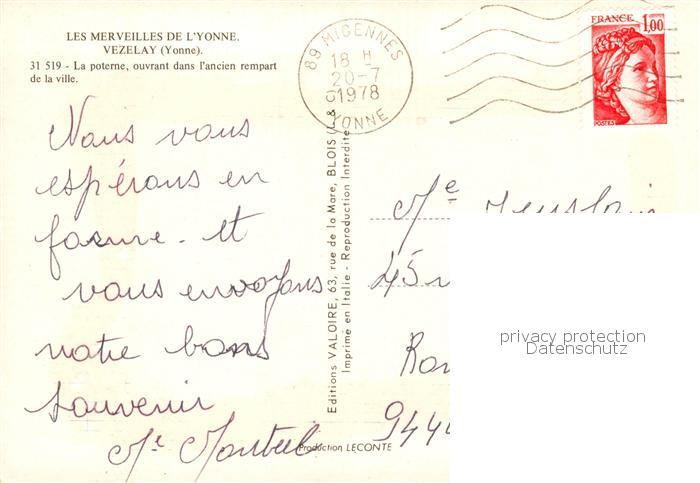 LES MERVEILLES DE L'YONNE.
VEZELAY (Yonne).
31 519 - La poterne, ouvrant dans l'ancien rempart
de la ville.
Nous vous
espérons en
forme. et
vous envoyons
notre bons
souvenir
Me
89 MIGENNES
18 H
20-7
1978
YONNE
FRANCE
1,00
POSTES
Editions VALOIRE, 63, rue de la Mare, BLOIS (L. & C.)
Imprimé en Italie - Reproduction Interdite
Production LECONTE
Me
45
944
privacy protection
Datenschutz